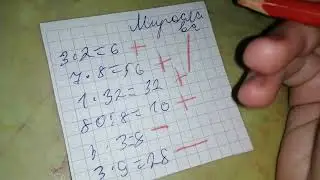 Мирослава
3·2=6 +
7·8=56 +
1·32=32 +
80:8=10 +
3=8 —
3·9=28 —